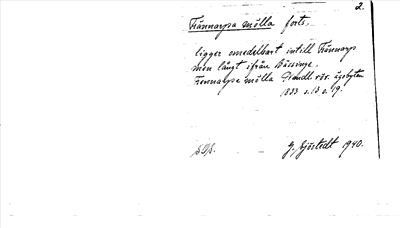 2.
Trännarpa mölla forts.
ligger omedelbart intill Trännarp
men långt ifrån Bössinge.
Trännarpa mölla Handl. rör. ägobyten
1833 s. 18 o. 19.
G. Sjöstedt 1940.